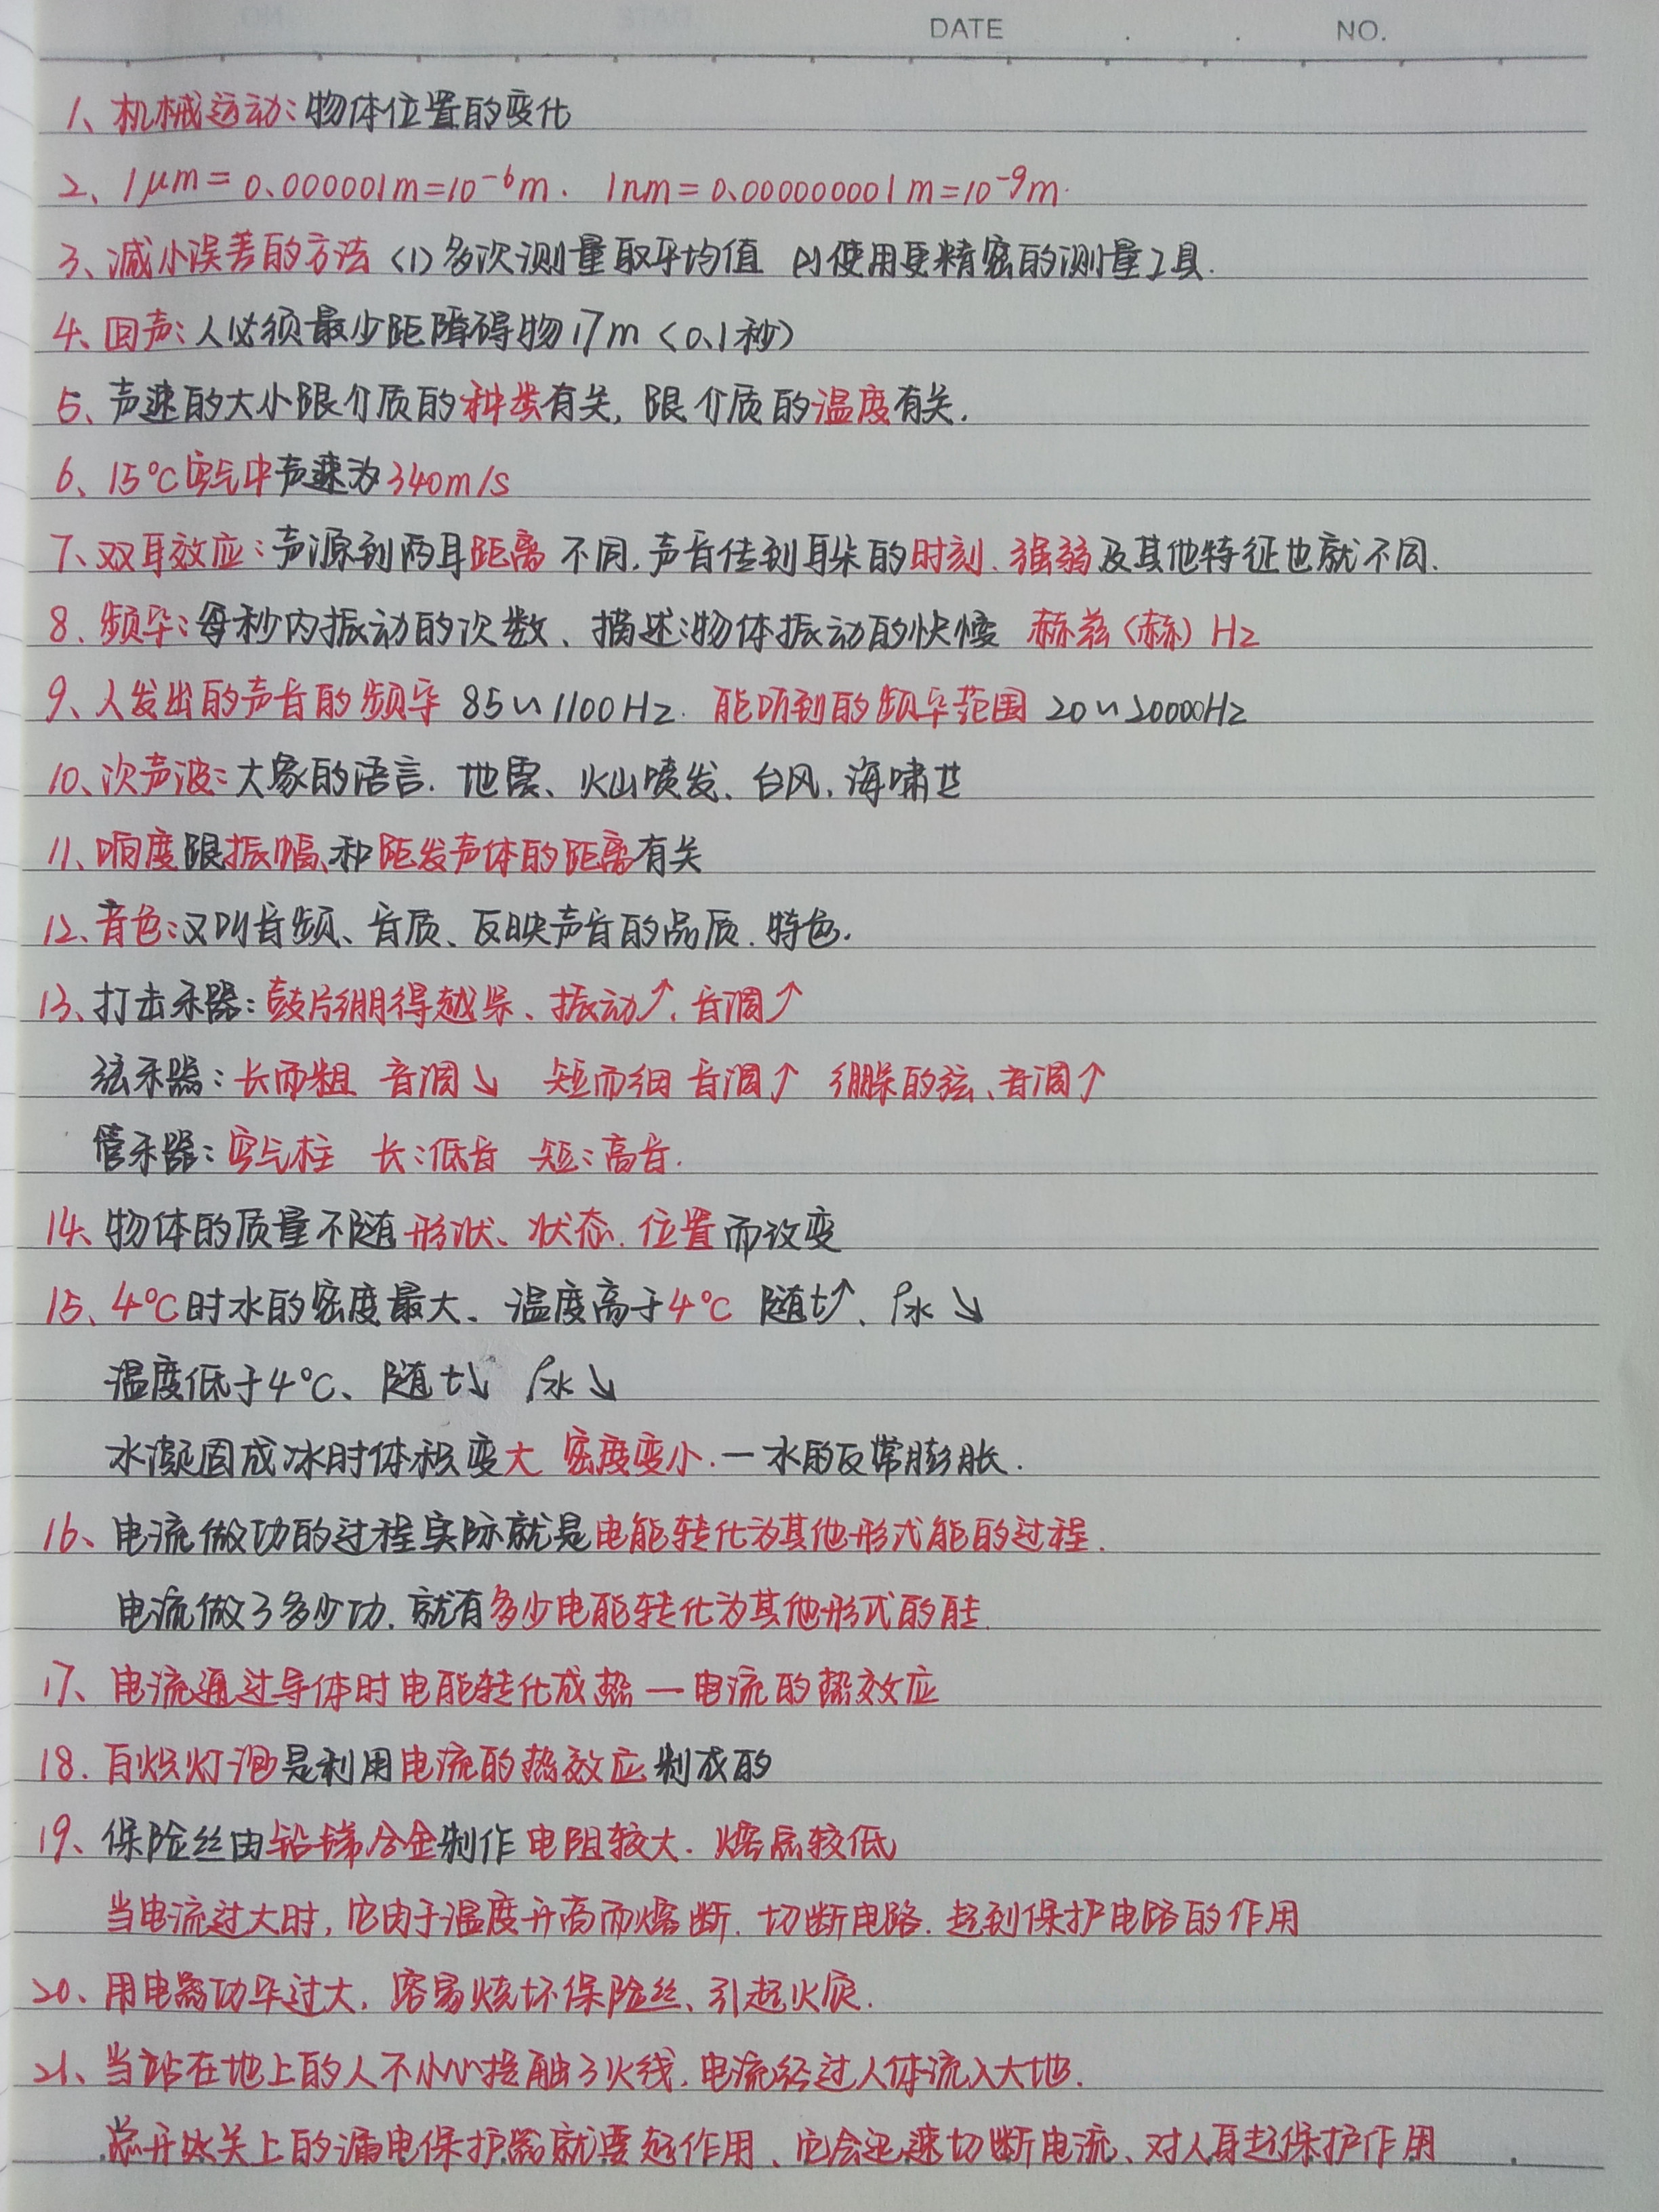 DATE . . NO.
1、机械运动：物体位置的变化
2、1μm=0.000001m=10⁻⁶m. 1nm=0.000000001m=10⁻⁹m.
3、减小误差的方法 (1)多次测量取平均值 (2)使用更精密的测量工具.
4、回声：人必须最少距障碍物17m (0.1秒)
5、声速的大小跟介质的种类有关, 跟介质的温度有关.
6、15℃空气中声速为340m/s
7、双耳效应：声源到两耳距离不同,声音传到耳朵的时刻、强弱及其他特征也就不同.
8、频率：每秒内振动的次数、描述物体振动的快慢 赫兹(赫) Hz
9、人发出的声音的频率 85~1100Hz. 能听到的频率范围 20~20000Hz
10、次声波：大象的语言. 地震、火山喷发、台风,海啸中
11、响度跟振幅、和距发声体的距离有关
12、音色：又叫音频、音质、反映声音的品质.特色.
13、打击乐器：鼓片绷得越紧、振动↑、音调↑
弦乐器：长而粗 音调↘ 短而细 音调↑ 绷紧的弦、音调↑
管乐器：空气柱 长：低音 短：高音.
14、物体的质量不随形状、状态.位置而改变
15、4℃时水的密度最大、温度高于4℃ 随t↑、ρ水↘
温度低于4℃、随t↓ ρ水↘
水凝固成冰时体积变大 密度变小.—水的反常膨胀.
16、电流做功的过程实际就是电能转化为其他形式能的过程.
电流做了多少功.就有多少电能转化为其他形式的能.
17、电流通过导体时电能转化成热—电流的热效应
18.白炽灯泡是利用电流的热效应制成的
19、保险丝由铅锑合金制作 电阻较大. 熔点较低
当电流过大时,它由于温度升高而熔断.切断电路.起到保护电路的作用
20、用电器功率过大, 容易烧坏保险丝、引起火灾.
21、当站在地上的人不小心接触了火线,电流经过人体流入大地.
总开关上的漏电保护器就要起作用、它会迅速切断电流、对人身起保护作用.